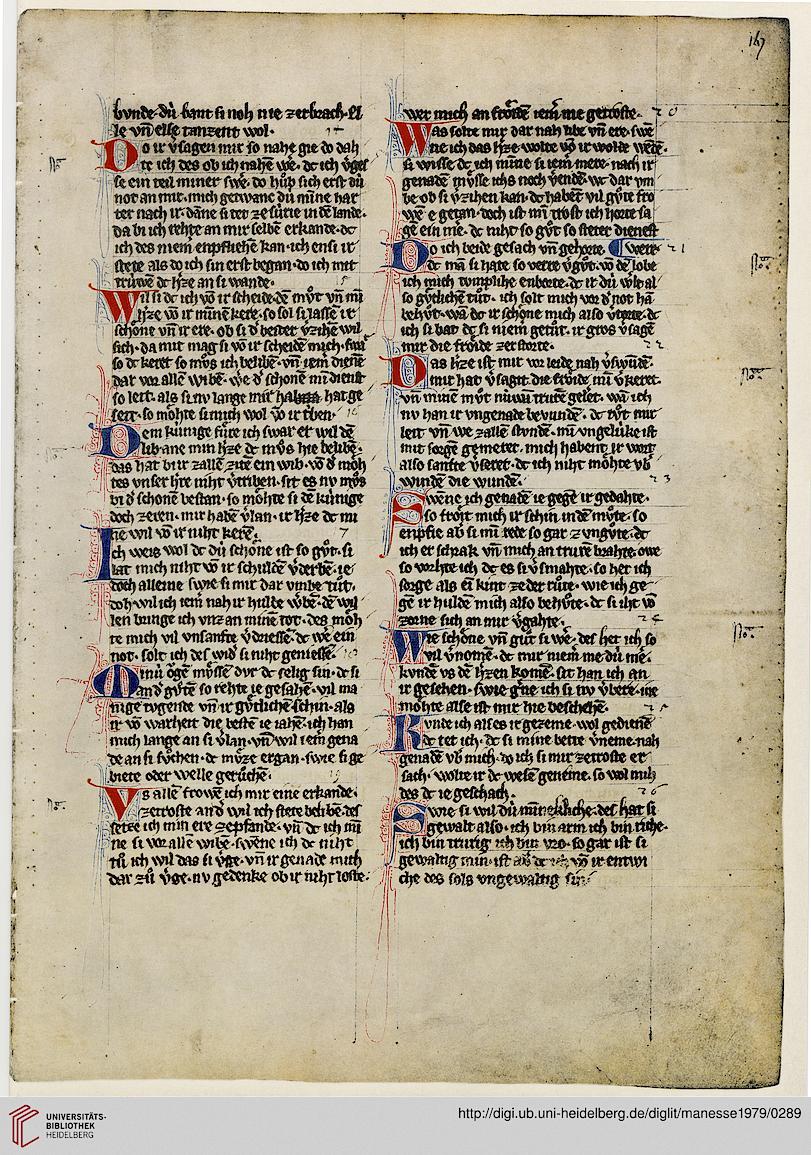 167
bvnde. dú bant si noh nie zerbrach. El
le vn̄ else tanzent wol.
Do ir v̾sagen mir so nahe gie do dah
te ich des ob ich nahē we. dc ich v̾ges
se ein teil miner swe. do hůp sich erst dú
not an mir. mich getwanc dú miñe har
ter nach ir. dāne si tet ze súrie in dē lande.
da bi ich rehte an mir selbē erkande. dc
ich des niem̄ enpfliehē kan. ich ensi ir
stete als do ich sin erst began. do ich mit
trúwē dc h̾ze an si wande.
Wil si dc ich vō ir scheide. dē můt vn̄ mī
h̾ze vō ir miñe kere. so sol si lassē ir
schōne vn̄ ir ere. ob si d̾ bester v̾zihē wil
sich. da mit mag si vō ir scheidē mich.
so dc keret so můs ich belibē. vn̄ iem̄ dienē
dar vor allē wibē. we d̾ schonē mī dienst
so leit. als si nv lange mir hat ge
seit. so mōhte si mich wol vō ir tͥben.
Dem kúnige fúre ich swar er wil dē
lib. ane min h̾ze dc můs hie belibē.
das hat bi ir zallē zitē ein wib. vō d̾ mōh
tes vnser h̾re niht v̾triben. sit es nv můs
bi d̾ schonē bestan. so mōhte si dē kúnige
doch zeren. mir habē v̾lan. ir h̾ze dc mi
ne wil vō ir niht kerē.
Ich weis wol dc dú schōne ist so gůt. si
lat mich niht vō ir schuldē v̾derbē. ie
doch alleine swie si mir dar vmbe tůt.
doh wil ich iem̄ nah ir hulde w̾bē. dē wil
len bringe ich vnz an minē tot. des mōh
te mich vil vnsanfte v̾driessē. dc wē ein
not. solt ich des wid̾ si niht geniessē.
Minú ōgē mūssē dvr dc selig sin. dc si
and̾ gůtē so rehte ie gesahē. vil ma
nige tvgende vn̄ ir gůtlichē schin. als
ir vō warheit die bestē ie iahē. ich han
mich lange an si v̾lan. vn̄ wil iem̄ gena
de an si sůchen. dc můze ergan. swie si ge
biete oder welle gerůchē.
Vs allē frowē ich mir eine erkande.
zetroste and̾ wil ich stete belibē. des
setze ich min ere zepfande. vn̄ dc ich mī
ne si vor allē wibe. swēne ich dc niht
tů ich wil das si v̾ge. vn̄ ir genade mich
dar zů v̾ge. nv gedenke ob ir niht loste.
wer mich an frōidē iem̄ me getroste. 20
Was solte mir dar nah libe vn̄ ere. swē
ne ich das h̾ze wolte vō ir wolte wēdē.
si wisse dc ich miñe si iem̄ mere. nach ir
genadē můsse ichs noch v̾endē. wc dar vm
be ob si v̾zihen kan. dc habēt vil gůte fro
wē e getan. doch ist mī trost ich horte sa
gē ein me. dc niht so gůt so steter dienest
Do ich beide gesach vn̄ gehorte. were 21
dc mā si hate so verre v̾gůt. vō dē lobe
ich mich tvmpliche enborte. dc ir dú w̾lt al
so gůtlichē tůt. ich solt mich vor d̾ not hā
behůt. wā dc ir schōne mich also v̾torte. dc
ich si bat dc si niem̄ getůt. ir gros v̾sagē
mir die frōide zerstorte. 22
Das h̾ze ist mir vor leide nah v̾swūdē.
mir hat v̾sagit die frōide mī v̾keret.
vn̄ minē můt núwú trure gelet. wā ich
nv han ir vngenade bevundē. dc tůt mir
leit vn̄ we zallē stvndē. mī vngelúke ist
mit sorgē gemeret. mich habent ir wort
also sanfte v̾seret. dc ich niht mōhte v̾b
windē die wundē. 23
Swēne ich genadē ie gegē ir gedahte.
so frōit mich ir schin in dē můte. so
enpfie ab̾ si mī rede so gar z vngůte. dc
ich er schrak vn̄ mich an trurē brahte. owe
so vorhte ich dc es si v̾smahte. so het ich
sorge als ei kint ze der růte. wie ich ge
gē ir huldem mich also behůte. dc si iht vō
zorne sich an mir v̾gahte. 24
Wie schōne vn̄ gůt si we. des het ich so
vil v̾nomē. dc mir niem̄ me dú mē.
kvnde vs dē h̾zen komē. sit han ich an
ir gesehen. swie g̾ne ich si nv v̾bere. me
mohte alse ist mir hie beschehē. 25
Kvnde ich als es ir gezeme. wol gedienē
dc tet ich. dc si mine bette v̾neme. nah
genadē vb̾ mich. do ich si mir zetroste er
sach. wolte ir dc wesē geneme. so wol mih
des dc ie geschach. 26
Swie si wil dú miñekliche. des hat si
gewalt also. ich bin arm ich bin riche.
ich bin trurig ich bin vro. so gar ist si
gewaltig min. ist vō ir entwi
che des sols vngewaltig sin
UNIVERSITÄTS-
BIBLIOTHEK
HEIDELBERG
http://digi.ub.uni-heidelberg.de/diglit/manesse1979/0289